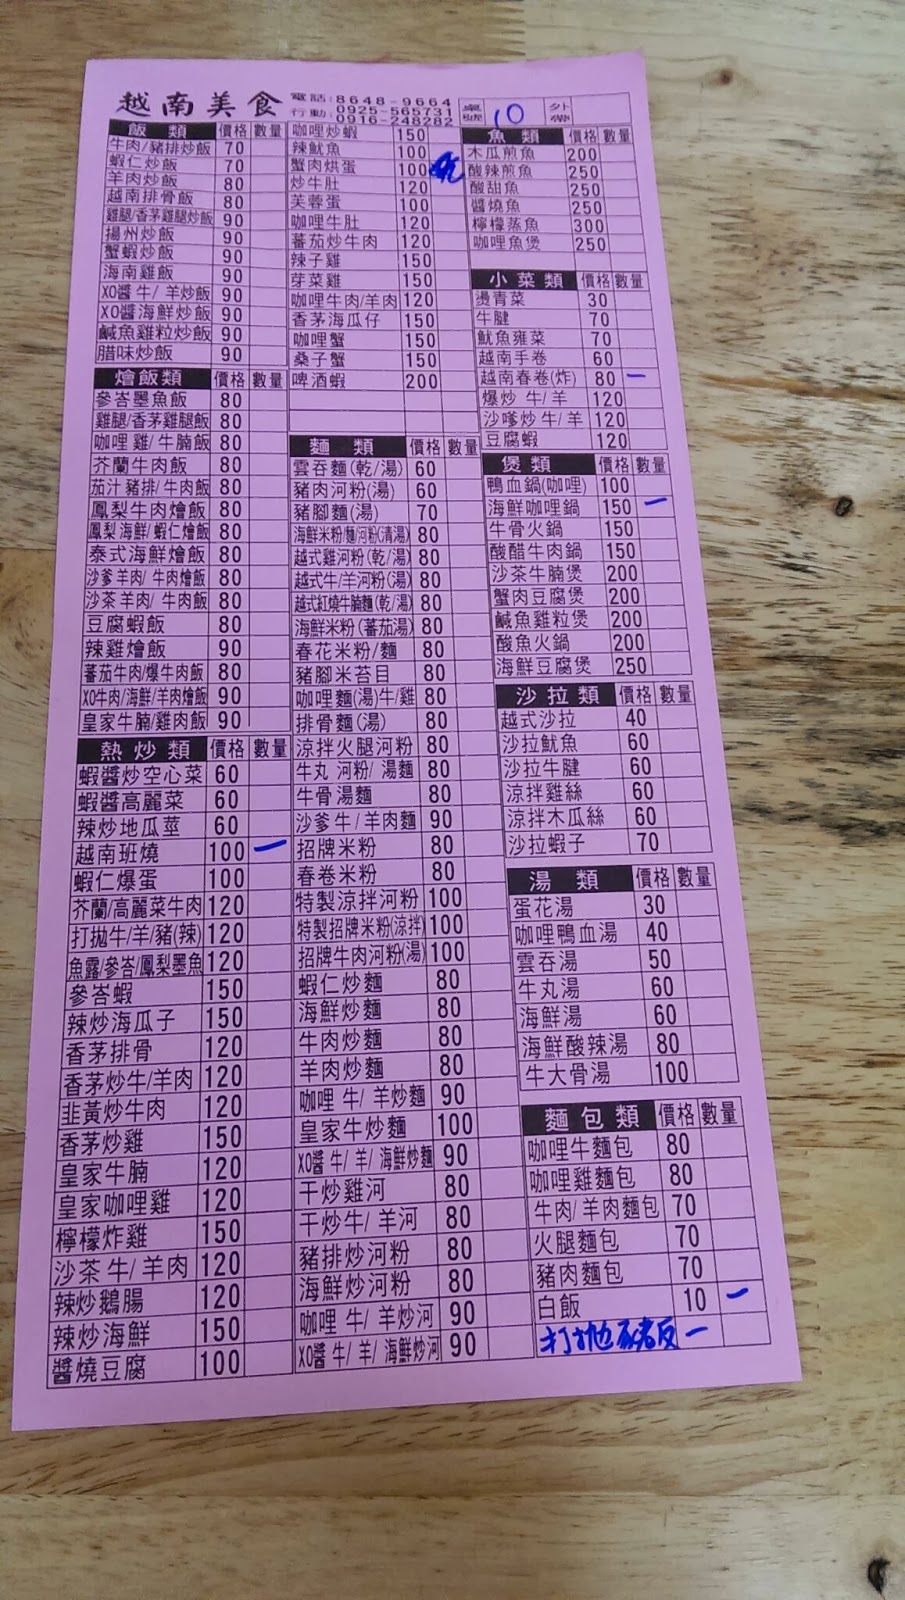 越南美食
電話:8648-9664
行動:0925-565731
0916-248282
桌號 10 外帶
飯類 價格 數量
牛肉/豬排炒飯 70
蝦仁炒飯 70
羊肉炒飯 80
越南排骨飯 80
雞腿/香茅雞腿炒飯 90
揚州炒飯 90
蟹蝦炒飯 90
海南雞飯 90
XO醬 牛/ 羊炒飯 90
XO醬海鮮炒飯 90
鹹魚雞粒炒飯 90
腊味炒飯 90
燴飯類 價格 數量
參峇墨魚飯 80
雞腿/香茅雞腿飯 80
咖哩 雞/ 牛腩飯 80
芥蘭牛肉飯 80
茄汁 豬排/ 牛肉飯 80
鳳梨牛肉燴飯 80
鳳梨 海鮮/ 蝦仁燴飯 80
泰式海鮮燴飯 80
沙爹 羊肉/ 牛肉燴飯 80
沙茶 羊肉/ 牛肉飯 80
豆腐蝦飯 80
辣雞燴飯 90
蕃茄牛肉/爆牛肉飯 80
XO牛肉/海鮮/羊肉燴飯 90
皇家牛腩/雞肉飯 90
熱炒類 價格 數量
蝦醬炒空心菜 60
蝦醬高麗菜 60
辣炒地瓜莖 60
越南班燒 100 一
蝦仁爆蛋 100
芥蘭/高麗菜牛肉 120
打拋牛/羊/豬(辣) 120
魚露/參峇/鳳梨墨魚 120
參峇蝦 150
辣炒海瓜子 150
香茅排骨 120
香茅炒牛/羊肉 120
韭黃炒牛肉 120
香茅炒雞 150
皇家牛腩 120
皇家咖哩雞 120
檸檬炸雞 150
沙茶 牛/ 羊肉 120
辣炒鵝腸 120
辣炒海鮮 150
醬燒豆腐 100
咖哩炒蝦 150
辣魷魚 100
蟹肉烘蛋 100
炒牛肚 120
芙蓉蛋 100
咖哩牛肚 120
蕃茄炒牛肉 120
辣子雞 150
芽菜雞 150
咖哩牛肉/羊肉 120
香茅海瓜仔 150
咖哩蟹 150
桑子蟹 150
啤酒蝦 200
麵類 價格 數量
雲吞麵(乾/湯) 60
豬肉河粉(湯) 60
豬腳麵(湯) 70
海鮮米粉/麵/河粉(清湯) 80
越式雞河粉(乾/湯) 80
越式牛/羊河粉(湯) 80
越式紅燒牛腩麵(乾/湯) 80
海鮮米粉(蕃茄湯) 80
春花米粉/麵 80
豬腳米苔目 80
咖哩麵(湯)牛/雞 80
排骨麵(湯) 80
涼拌火腿河粉 80
牛丸 河粉/ 湯麵 80
牛骨湯麵 80
沙爹牛/羊肉麵 90
招牌米粉 80
春卷米粉 80
特製涼拌河粉 100
特製招牌米粉(涼拌) 100
招牌牛肉河粉(湯) 100
蝦仁炒麵 80
海鮮炒麵 80
牛肉炒麵 80
羊肉炒麵 80
咖哩 牛/ 羊炒麵 90
皇家牛炒麵 100
XO醬 牛/ 羊/ 海鮮炒麵 90
干炒雞河 80
干炒牛/ 羊河 80
豬排炒河粉 80
海鮮炒河粉 80
咖哩 牛/ 羊炒河 90
XO醬 牛/ 羊/ 海鮮炒河 90
魚類 價格 數量
木瓜煎魚 200
酸辣煎魚 250
酸甜魚 250
醬燒魚 250
檸檬蒸魚 300
咖哩魚煲 250
小菜類 價格 數量
燙青菜 30
牛腱 70
魷魚雍菜 70
越南手卷 60
越南春卷(炸) 80 一
爆炒 牛/ 羊 120
沙嗲炒 牛/ 羊 120
豆腐蝦 120
煲類 價格 數量
鴨血鍋(咖哩) 100
海鮮咖哩鍋 150 一
牛骨火鍋 150
酸醋牛肉鍋 150
沙茶牛腩煲 200
蟹肉豆腐煲 200
鹹魚雞粒煲 200
酸魚火鍋 200
海鮮豆腐煲 250
沙拉類 價格 數量
越式沙拉 40
沙拉魷魚 60
沙拉牛腱 60
涼拌雞絲 60
涼拌木瓜絲 60
沙拉蝦子 70
湯類 價格 數量
蛋花湯 30
咖哩鴨血湯 40
雲吞湯 50
牛丸湯 60
海鮮湯 60
海鮮酸辣湯 80
牛大骨湯 100
麵包類 價格 數量
咖哩牛麵包 80
咖哩雞麵包 80
牛肉/ 羊肉麵包 70
火腿麵包 70
豬肉麵包 70
白飯 10 一
打拋豬飯 一